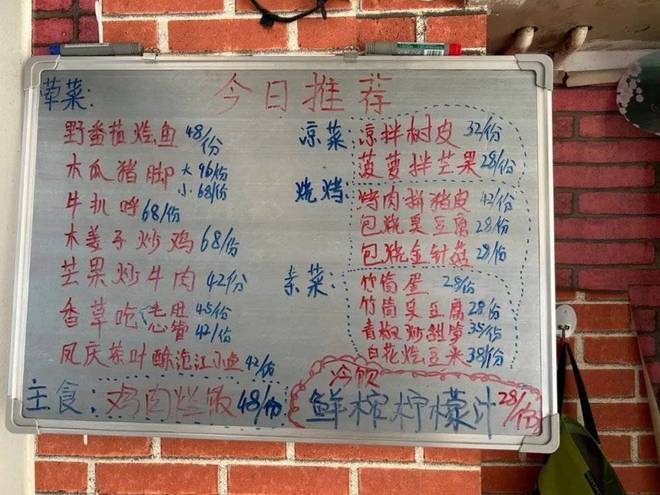 今日推荐
荤菜:
野番茄烩鱼 48/份
木瓜猪脚 大 96/份
小 68/份
牛扒呼 68/份
木姜子炒鸡 68/份
芒果炒牛肉 42/份
香草吃 毛肚 45/份
心管 42/份
凤庆茶叶酥泡江小鱼 42/份
凉菜
凉拌树皮 32/份
菠萝拌芒果 28/份
烧烤
烤肉拼猪皮 42/份
包烧臭豆腐 28/份
包烧金针菇 28/份
素菜:
竹筒蛋 28/份
竹筒臭豆腐 28/份
青椒炒甜笋 35/份
白花烩豆米 38/份
主食: 鸡肉烂饭 48/份
冷饮
鲜榨柠檬汁 28/份